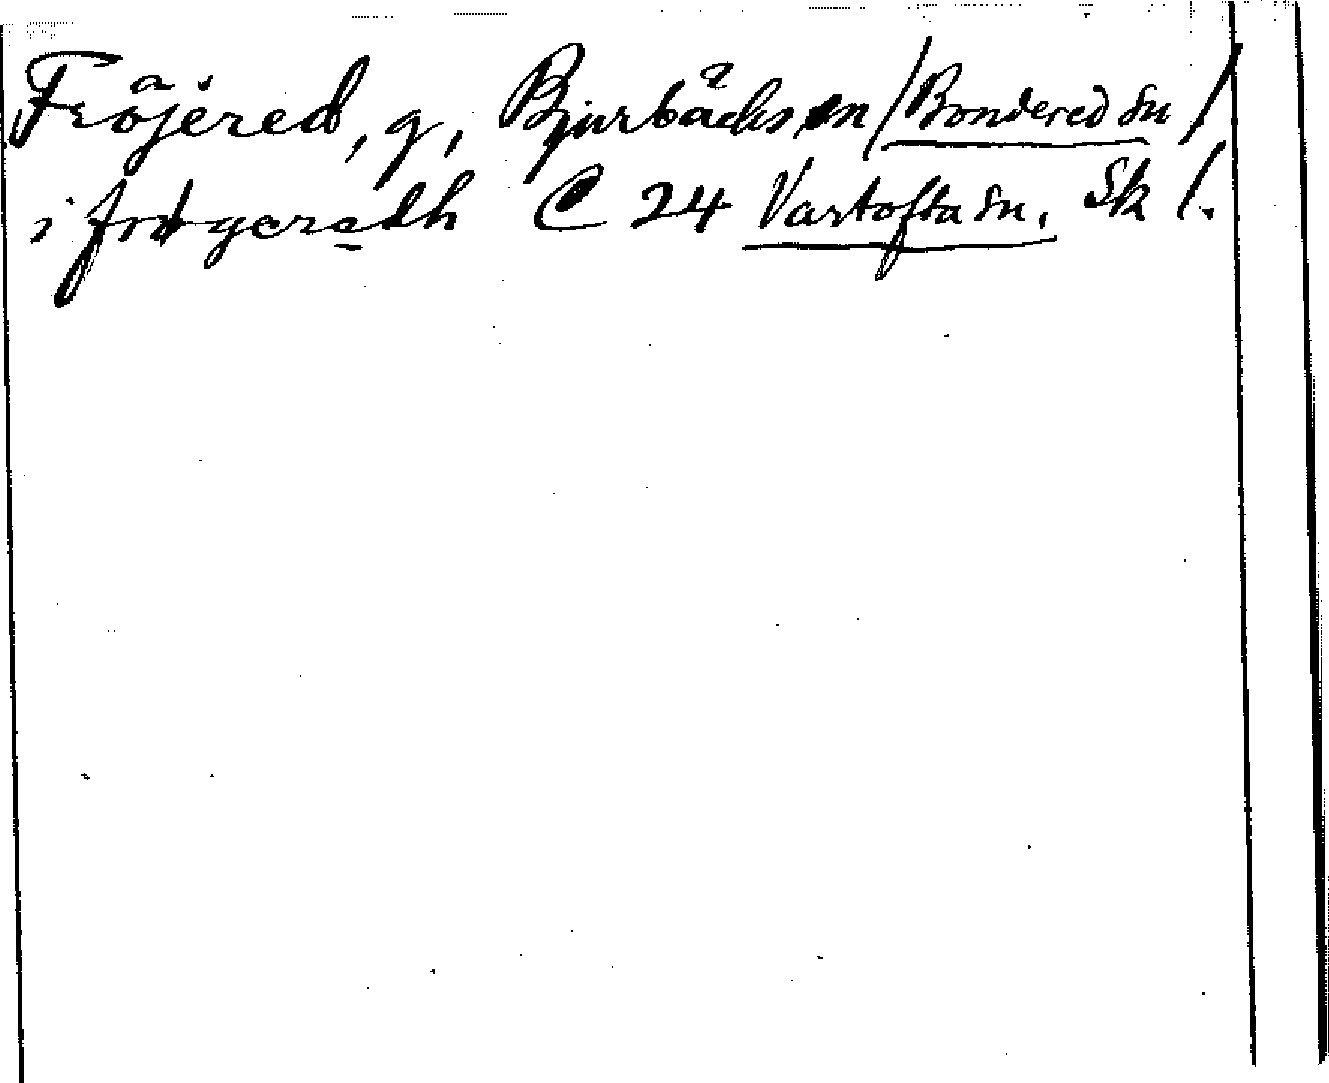 Fröjered, g, Bjurbäcks sn / Bondered sn /
i frøgeredh C 24 Vartofta sn. Sk /.